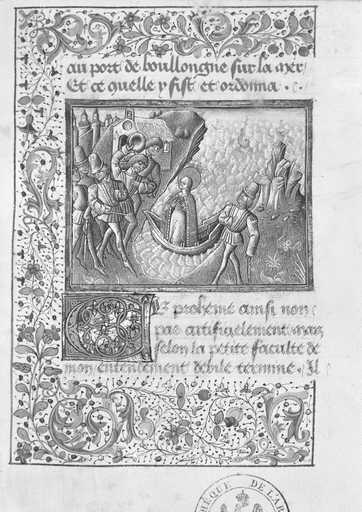 au port de boullongne sur la mer
Et ce quelle y fist et ordonna.
Cez proheme ainsi non
par artificielement mais
selon la petite faculte de
mon entendement debile termine. Il
THÈQUE DE L'AR